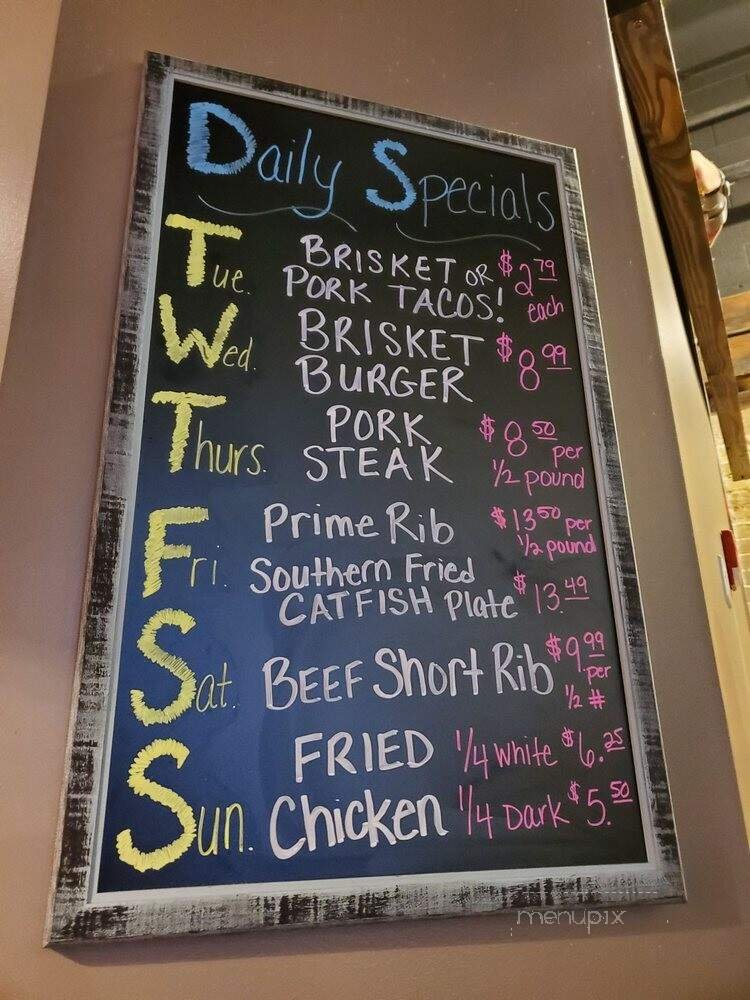 Daily Specials
Tue. BRISKET OR $2.79
PORK TACOS! each
Wed. BRISKET $8.99
BURGER
Thurs. PORK $8.50 per
STEAK 1/2 pound
Fri. Prime Rib $13.50 per
1/2 pound
Southern Fried
CATFISH Plate $13.49
Sat. BEEF Short Rib $9.99
per
1/2 #
Sun. FRIED 1/4 white $6.25
Chicken 1/4 Dark $5.50
menupix